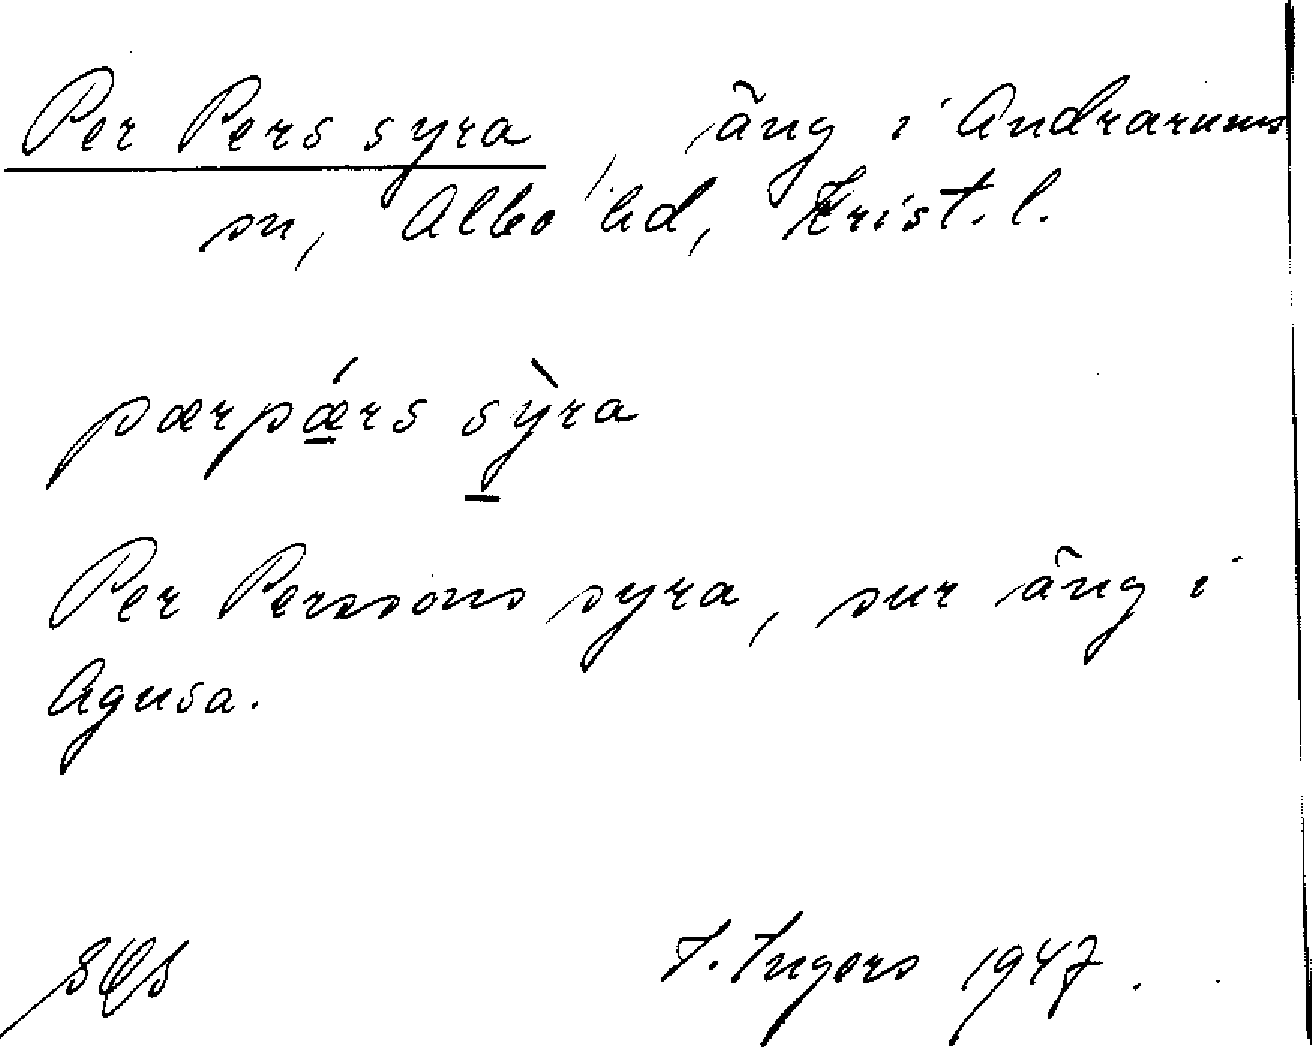 Per Pers syra, äng i Andrarums
sn, Albo hd, Krist. l.
pærpǽrs sỳra
Per Perssons syra, sur äng i
Agusa.
I. Ingers 1947.